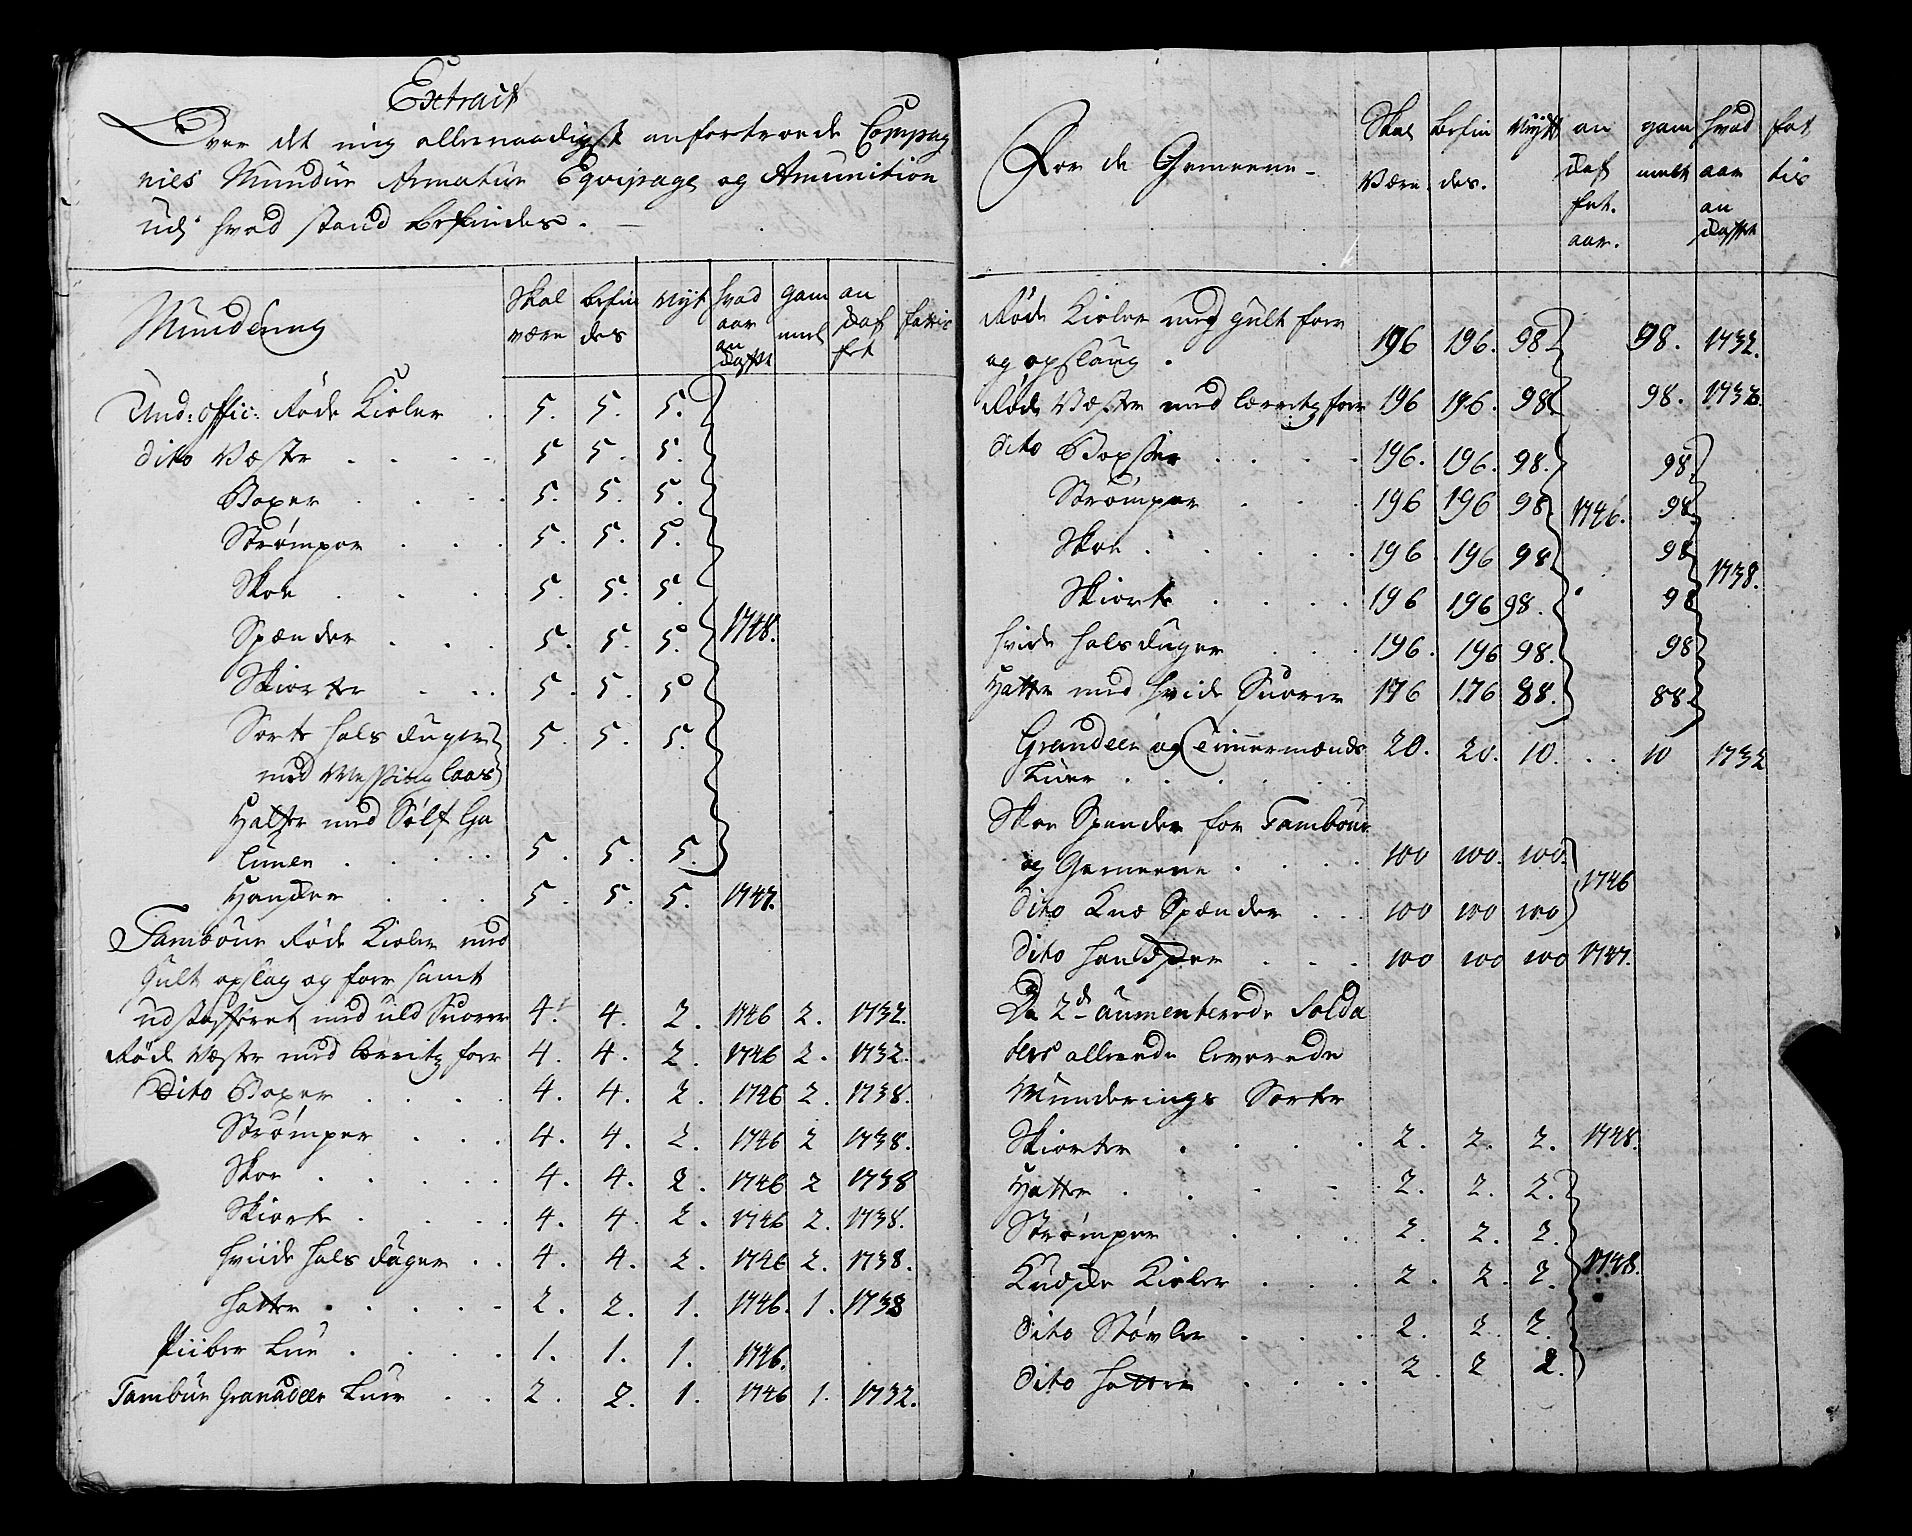 Extract
Over det mig allernaadigst anfortroede Compag
nies Mundur Armatur Eqvipage og Amunition
udj hvad stand befindes.
Mundering | Skal være | befin des | Nyt | hvad aar an daffet | gam mel | an daf fet | fattis
Und: offic: Røde Kioler . 5. 5. 5.
dito Væste . . . 5 5. 5.
Boxer . . . 5. 5. 5.
Strømper . . . 5. 5. 5.
Skoe . . . 5. 5. 5.
Spænder . . . 5. 5. 5. 1748.
Skiorter . . . 5. 5. 5
Sorte hals duger 5. 5. 5.
med Messing laas
Hatter med Sølf Ga
luner . . . . 5. 5. 5.
Handsker . . . 5. 5. 5. 1747.
Tambour Røde Kioler med
Gult opslag og foer samt
udstafferet med uld Snorer 4. 4. 2. 1746 2. 1732.
Røde Væste med lerritz foer 4. 4. 2. 1746 2. 1732.
Dito Boxer . . . . 4. 4. 2. 1746 2. 1738.
Strømper . . . 4. 4. 2. 1746 2 1738.
Skoe . . . . . 4. 4. 2. 1746 2 1738
Skiorte . . . . 4. 4. 2. 1746 2. 1738.
hviide hals duger . . 4. 4. 2. 1746 2. 1738.
hatte . . . . . 2. 2. 1. 1746. 1. 1738
Piiber Lue . . . . 1. 1. 1. 1746.
Tambur Granadeer Luer . . 2. 2. 1. 1746 1. 1732.
For de Gemeene | Skal Være | befin des. | Nydt | an daf fet. aar. | gam melt | hvad aar an daffet | fat tis
Røde Kioler med gult foer
og opslaug . 196 196. 98 98. 1732.
Røde Væster med lærritz foer 196 196. 98 98. 1732.
dito Boxser . . . . 196. 196. 98. 98.
Strømper . . . 196 196 98. 1746. 98.
Skoe . . . . . 196. 196 98. 98 1738.
Skiorte . . . . 196 196 98. 98
hvide halsduger . . . 196. 196 98. 98
Hatte med hvide Snorer 176 176 88. 88.
Grandeer og Timmermænds 20. 20. 10. . . 10 1732
Luer . . . . . .
Skoe Spender for Tambour
og Gemeene . . . . 100 100. 100. 1746
dito Knæ Spænder . . . 100 100 100
Dito handsker . . . 100 100 100 1747.
De 2de aumenterede Solda
ters allerede leverede
Munderings Sorter
Skiorter . . . . 2. 2. 2. 1748.
Hatte . . . . . 2. 2. 2.
Strømper . . . 2. 2. 2.
Kudske Kioler . . . 2. 2. 2. 1748.
Dito Støvler . . . 2. 2. 2.
Dito hatter . . . . 2. 2 2.